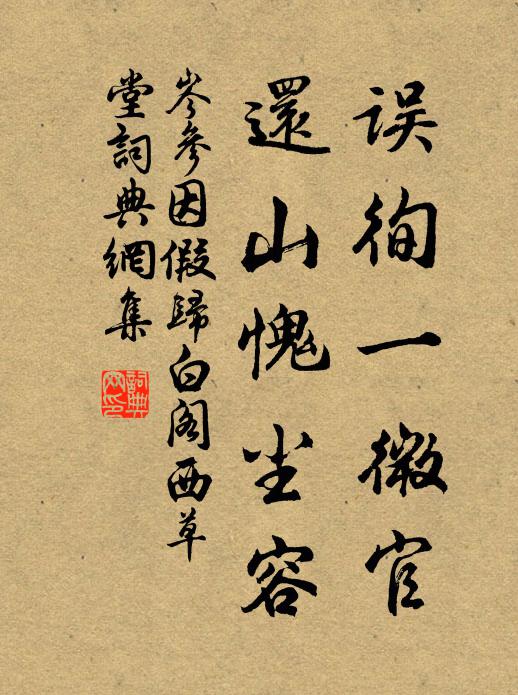 误徇一微官
還山愧尘容
岑參因假歸白阁西草
堂詞典網集
詞典
网印